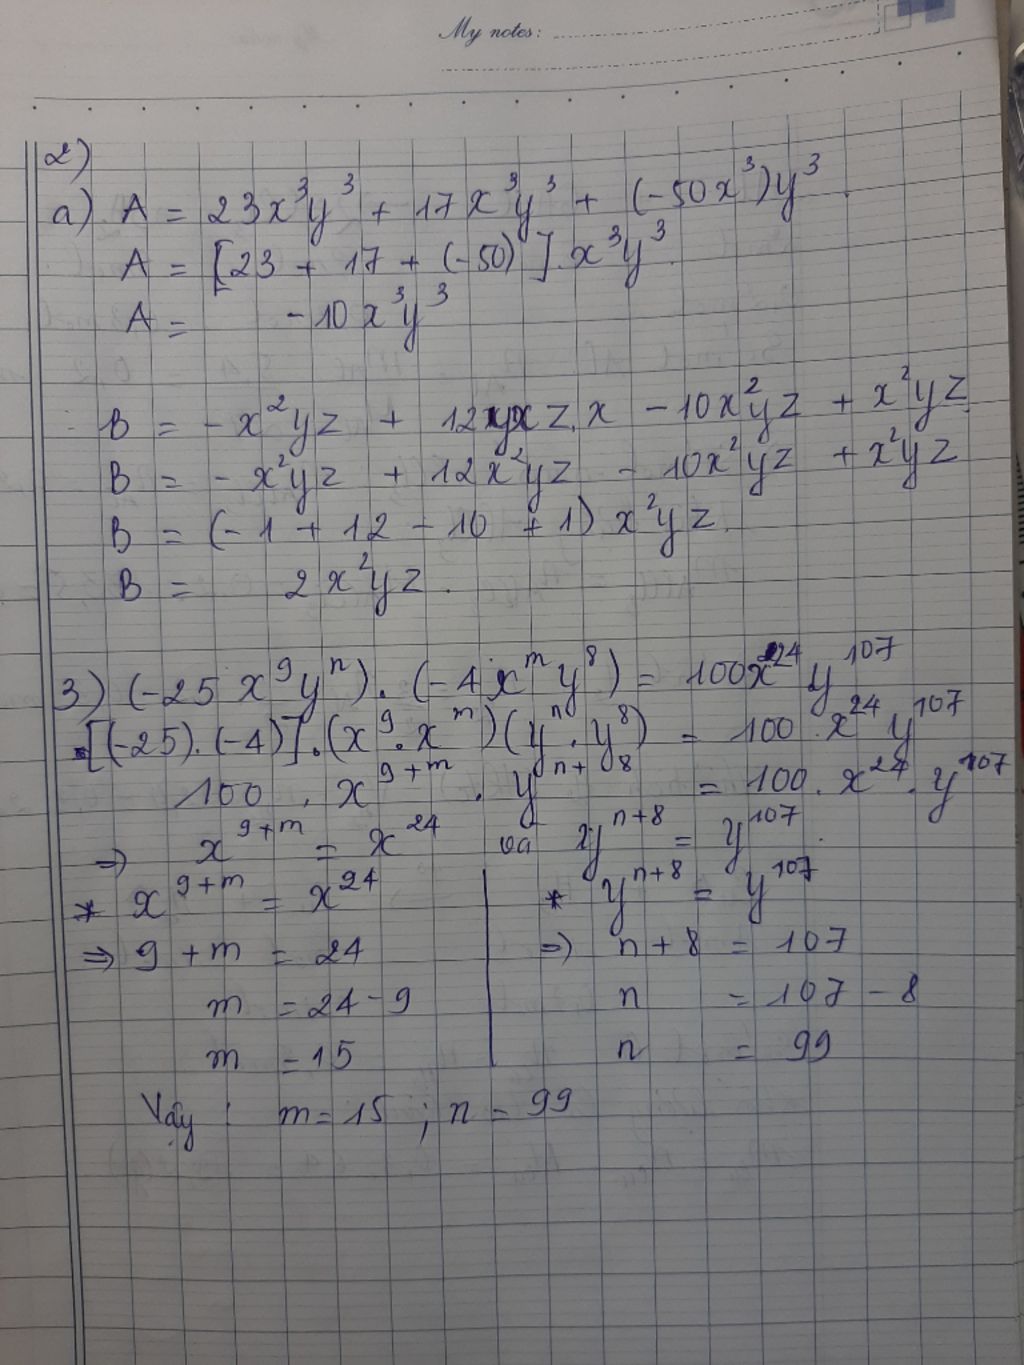 My notes:
2)
a) A = 23x³y³ + 17x³y³ + (-50x³)y³.
A = [23 + 17 + (-50)].x³y³.
A = -10x³y³
B = -x²yz + 12xyxz.x - 10x²yz + x²yz
B = -x²yz + 12x²yz - 10x²yz + x²yz
B = (-1 + 12 - 10 + 1) x²yz.
B = 2x²yz.
3) (-25x⁹yⁿ).(-4xᵐy⁸) = 100x²⁴y¹⁰⁷
[(-25).(-4)].(x⁹.xᵐ)(yⁿ.y⁸) = 100.x²⁴y¹⁰⁷
100.x⁹⁺ᵐ.yⁿ⁺⁸ = 100.x²⁴.y¹⁰⁷
=> x⁹⁺ᵐ = x²⁴ và yⁿ⁺⁸ = y¹⁰⁷.
* x⁹⁺ᵐ = x²⁴
=> 9 + m = 24
m = 24 - 9
m = 15
* yⁿ⁺⁸ = y¹⁰⁷
=> n + 8 = 107
n = 107 - 8
n = 99
Vậy : m = 15 ; n = 99